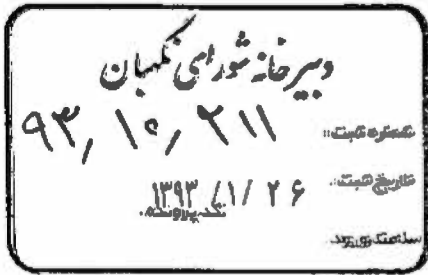 دبیرخانه شورای نگهبان
شماره ثبت: ۹۳/۱۰/۲۱۱
تاریخ ثبت: ۱۳۹۳/۱/۲۶
کد پرونده:
ساعت ورود: